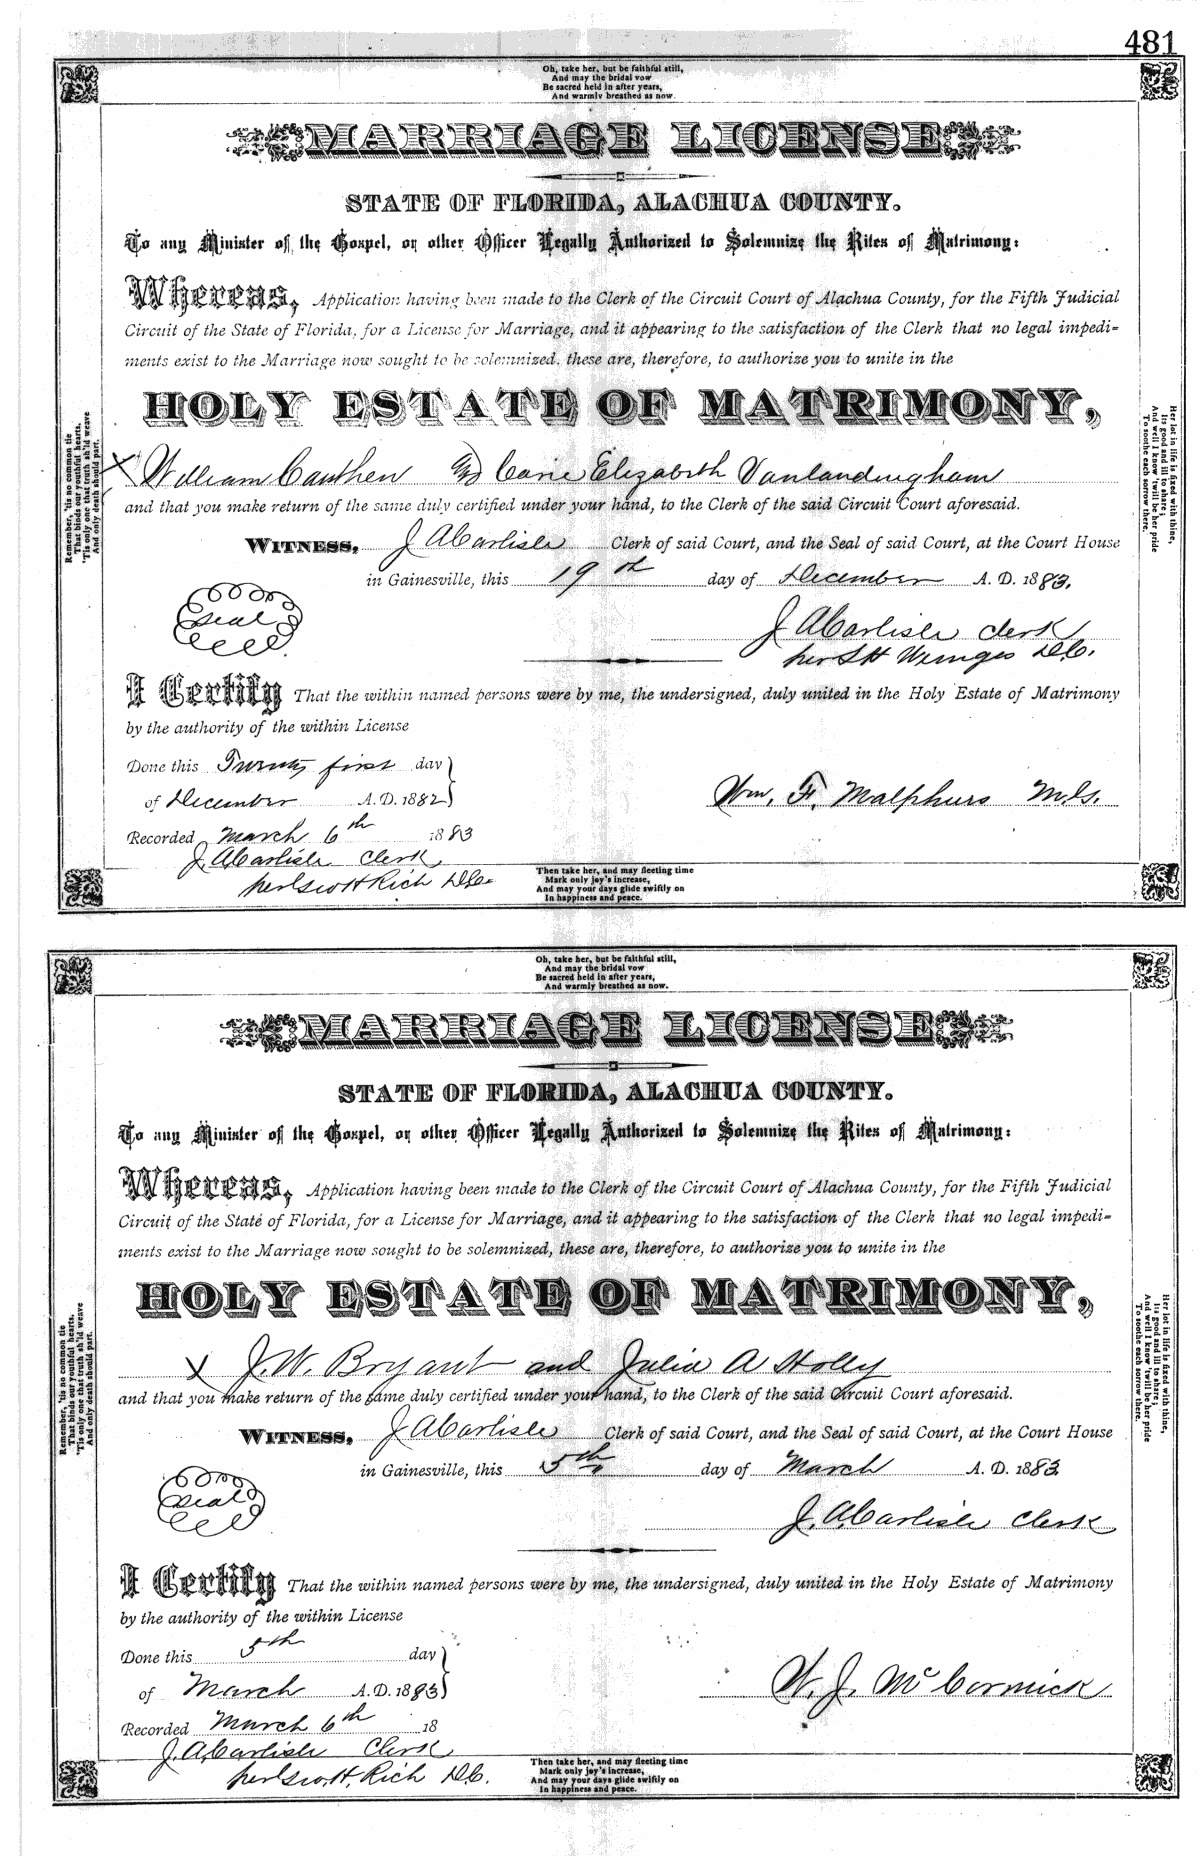 481
Oh, take her, but be faithful still,
And may the bridal vow
Be sacred held in after years,
And warmly breathed as now.
MARRIAGE LICENSE
STATE OF FLORIDA, ALACHUA COUNTY.
To any Minister of the Gospel, or other Officer Legally Authorized to Solemnize the Rites of Matrimony:
Whereas, Application having been made to the Clerk of the Circuit Court of Alachua County, for the Fifth Judicial
Circuit of the State of Florida, for a License for Marriage, and it appearing to the satisfaction of the Clerk that no legal impedi=
ments exist to the Marriage now sought to be solemnized, these are, therefore, to authorize you to unite in the
HOLY ESTATE OF MATRIMONY,
X William Cauthen and Carie Elizabeth Vanlandingham
and that you make return of the same duly certified under your hand, to the Clerk of the said Circuit Court aforesaid.
WITNESS, J A Carlisle Clerk of said Court, and the Seal of said Court, at the Court House
in Gainesville, this 19th day of December A. D. 1883.
Seal
J A Carlisle Clerk
per S H D.C.
I Certify That the within named persons were by me, the undersigned, duly united in the Holy Estate of Matrimony
by the authority of the within License
Done this Twenty first day
of December A.D. 1882
Wm. F. Malphurs M.G.
Recorded March 6th 1883
J. A Carlisle Clerk
per Scott Rich D.C.
Remember, 'tis no common tie
That binds our youthful hearts,
'Tis only one that truth sh'ld weave
And only death should part.
Her lot in life is fixed with thine,
Its good and ill to share;
And well I know 'twill be her pride
To soothe each sorrow there.
Then take her, and may fleeting time
Mark only joy's increase,
And may your days glide swiftly on
In happiness and peace.
Oh, take her, but be faithful still,
And may the bridal vow
Be sacred held in after years,
And warmly breathed as now.
MARRIAGE LICENSE
STATE OF FLORIDA, ALACHUA COUNTY.
To any Minister of the Gospel, or other Officer Legally Authorized to Solemnize the Rites of Matrimony:
Whereas, Application having been made to the Clerk of the Circuit Court of Alachua County, for the Fifth Judicial
Circuit of the State of Florida, for a License for Marriage, and it appearing to the satisfaction of the Clerk that no legal impedi=
ments exist to the Marriage now sought to be solemnized, these are, therefore, to authorize you to unite in the
HOLY ESTATE OF MATRIMONY,
X J. W. Bryant and Julia A Holly
and that you make return of the same duly certified under your hand, to the Clerk of the said Circuit Court aforesaid.
WITNESS, J A Carlisle Clerk of said Court, and the Seal of said Court, at the Court House
in Gainesville, this 5th day of March A. D. 1883
Seal
J. A. Carlisle Clerk
I Certify That the within named persons were by me, the undersigned, duly united in the Holy Estate of Matrimony
by the authority of the within License
Done this 5th day
of March A.D. 1883
W. J. McCormick
Recorded March 6th 18
J. A. Carlisle Clerk
per Scott Rich D.C.
Remember, 'tis no common tie
That binds our youthful hearts,
'Tis only one that truth sh'ld weave
And only death should part.
Her lot in life is fixed with thine,
Its good and ill to share;
And well I know 'twill be her pride
To soothe each sorrow there.
Then take her, and may fleeting time
Mark only joy's increase,
And may your days glide swiftly on
In happiness and peace.